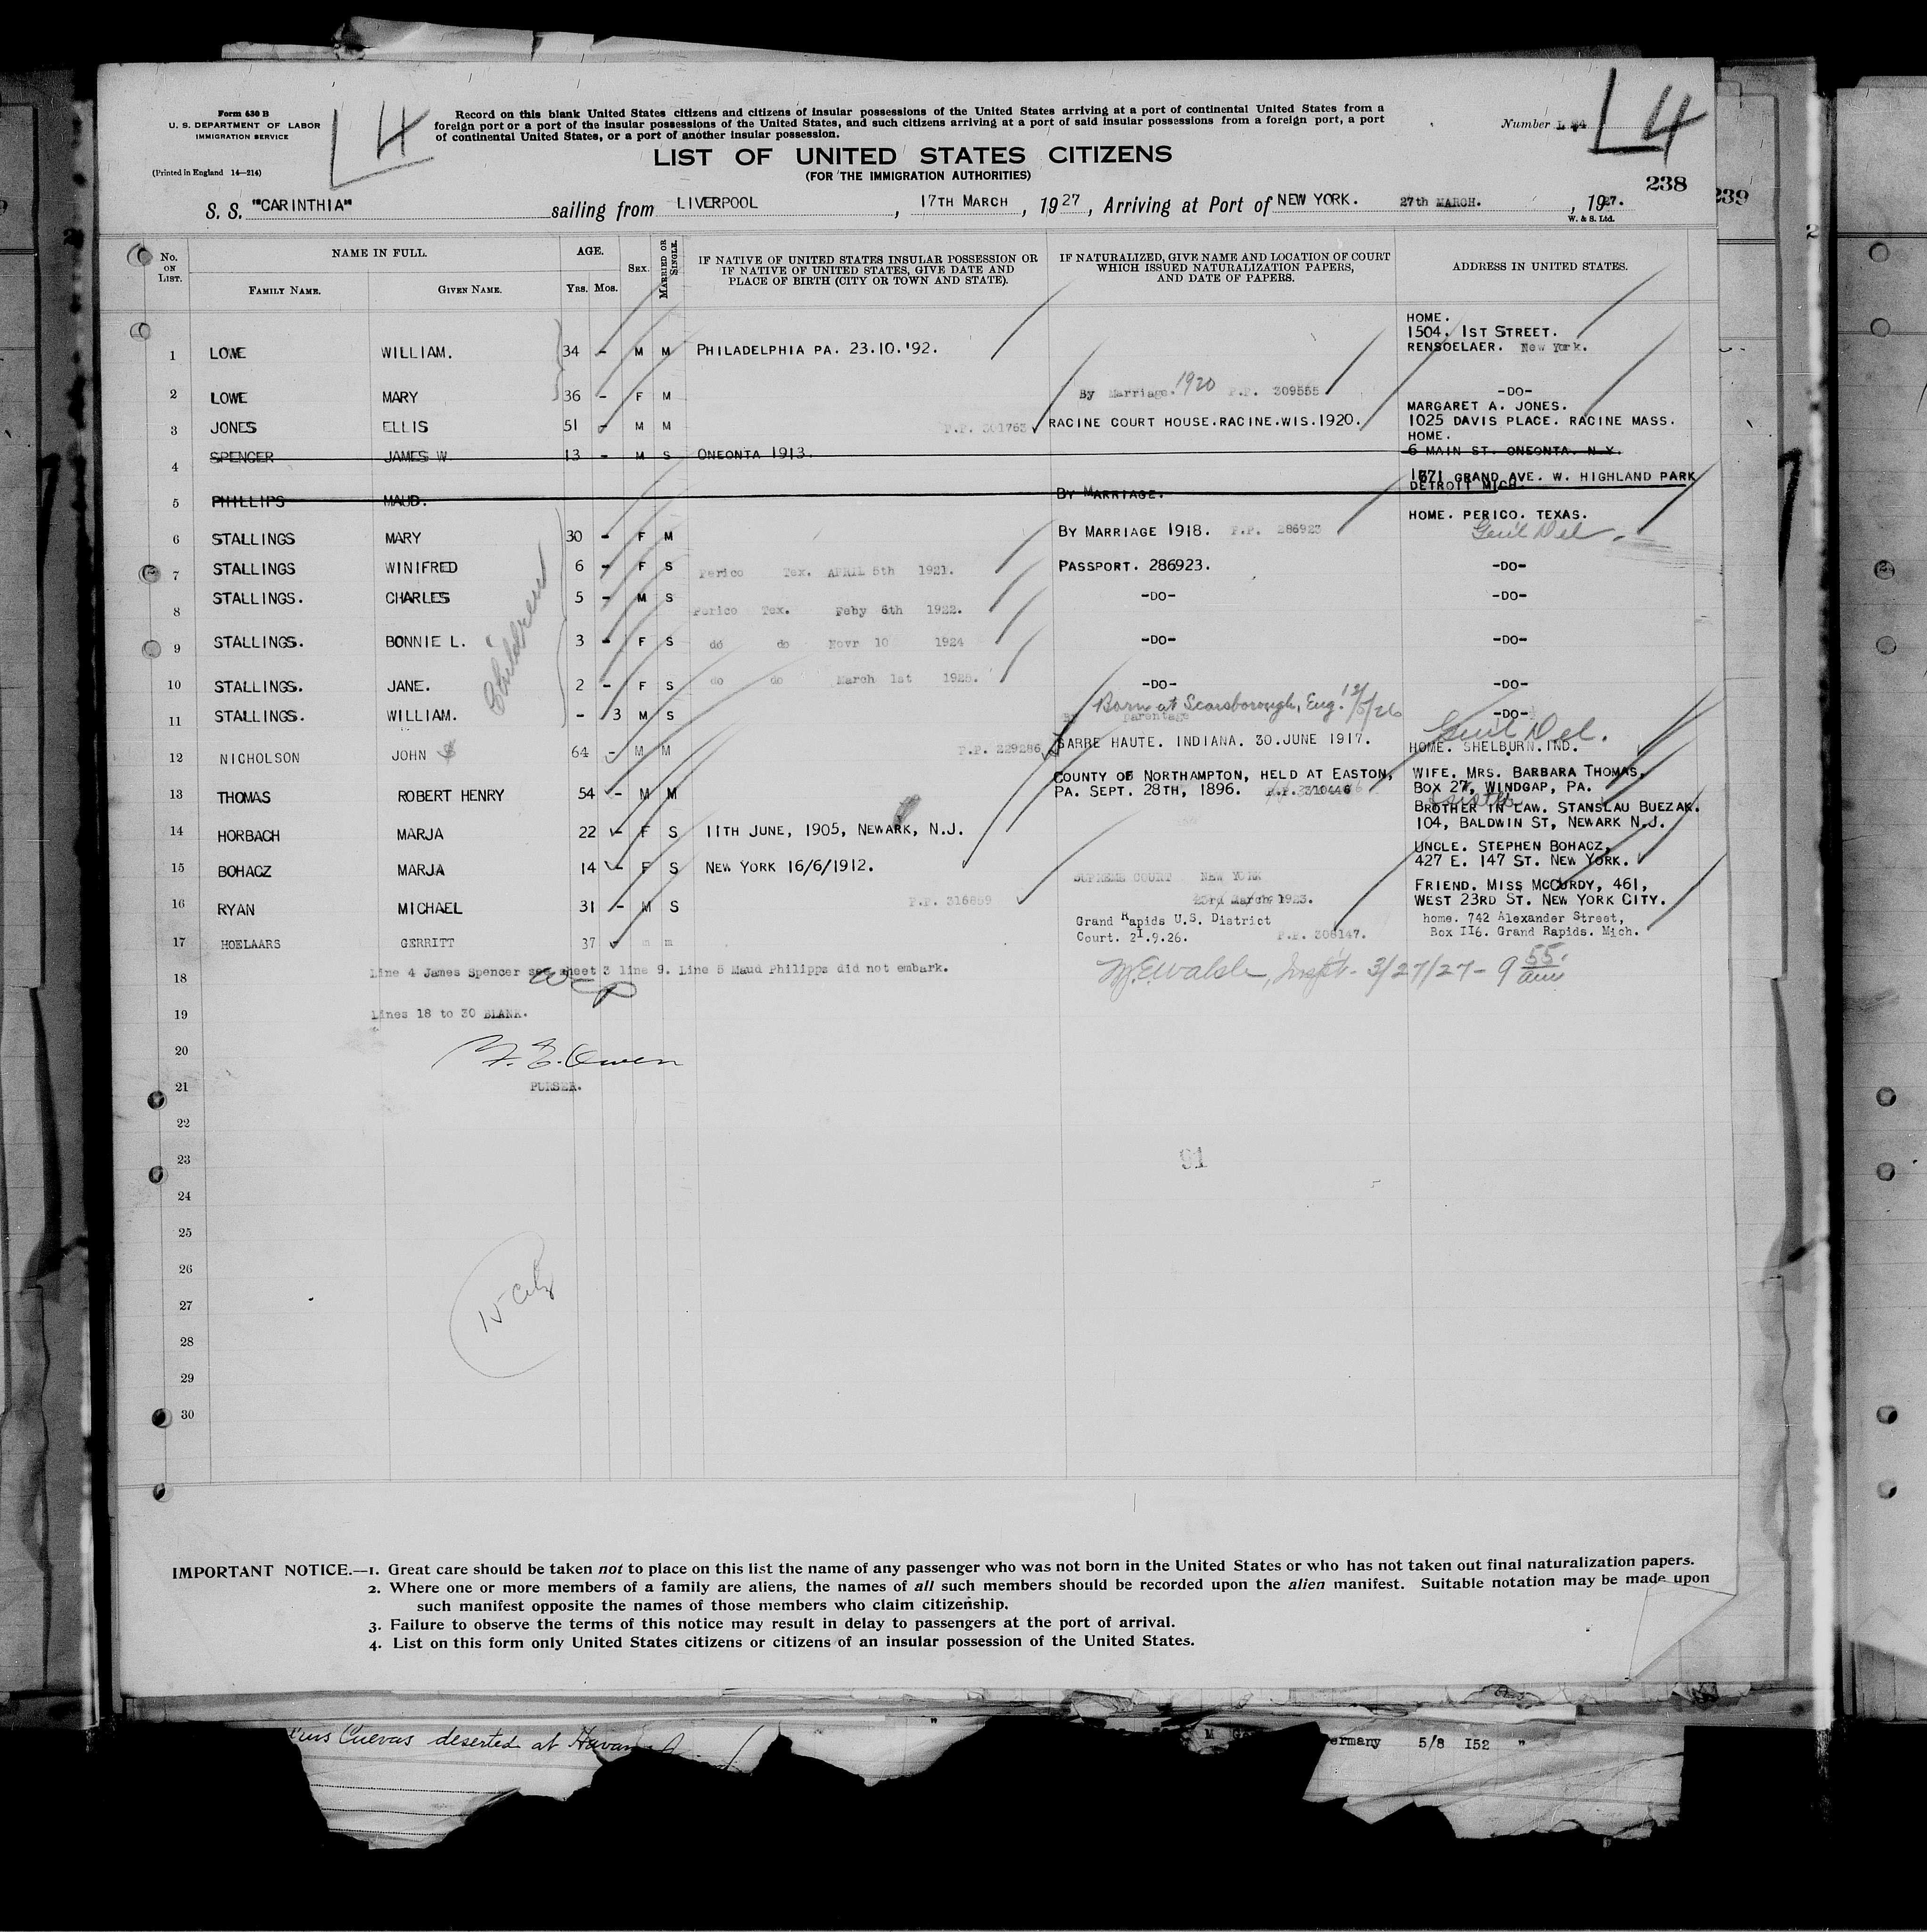 Form 630 B
U. S. DEPARTMENT OF LABOR
IMMIGRATION SERVICE
(Printed in England 14—214)
L4
Record on this blank United States citizens and citizens of insular possessions of the United States arriving at a port of continental United States from a
foreign port or a port of the insular possessions of the United States, and such citizens arriving at a port of said insular possessions from a foreign port, a port
of continental United States, or a port of another insular possession.
Number L
L4
LIST OF UNITED STATES CITIZENS
(FOR THE IMMIGRATION AUTHORITIES)
238
239
S. S. "CARINTHIA" sailing from LIVERPOOL, 17TH MARCH, 1927, Arriving at Port of NEW YORK. 27th MARCH., 1927.
W. & S. Ltd.
No. ON LIST. NAME IN FULL. AGE. SEX. MARRIED OR SINGLE. IF NATIVE OF UNITED STATES INSULAR POSSESSION OR IF NATIVE OF UNITED STATES, GIVE DATE AND PLACE OF BIRTH (CITY OR TOWN AND STATE). IF NATURALIZED, GIVE NAME AND LOCATION OF COURT WHICH ISSUED NATURALIZATION PAPERS, AND DATE OF PAPERS. ADDRESS IN UNITED STATES.
FAMILY NAME. GIVEN NAME. YRS. MOS.
HOME.
1504. 1ST STREET.
1 LOWE WILLIAM. 34 - M M PHILADELPHIA PA. 23.10.'92. RENSOELAER. New York.
2 LOWE MARY 36 - F M By Marriage. 1920 P.P. 309555 -DO-
MARGARET A. JONES.
3 JONES ELLIS 51 - M M P.P. 301763 RACINE COURT HOUSE.RACINE.WIS.1920. 1025 DAVIS PLACE. RACINE MASS.
HOME.
4 SPENCER JAMES W 13 - M S ONEONTA 1913. 6 MAIN ST. ONEONTA. N.Y.
1671 GRAND AVE. W. HIGHLAND PARK
5 PHILLIPS MAUD. BY MARRIAGE. DETROIT MICH.
HOME. PERICO. TEXAS.
6 STALLINGS MARY 30 - F M BY MARRIAGE 1918. P.P. 286923 Gen'l Del
7 STALLINGS WINIFRED 6 - F S Perico Tex. APRIL 5th 1921. PASSPORT. 286923. -DO-
8 STALLINGS. CHARLES 5 - M S Perico Tex. Feby 6th 1922. -DO- -DO-
Children
9 STALLINGS. BONNIE L. 3 - F S do do Novr 10 1924 -DO- -DO-
10 STALLINGS. JANE. 2 - F S do do March 1st 1925. -DO- -DO-
Born at Scarsborough, Eng. 12/5/26
11 STALLINGS. WILLIAM. - 3 M S By parentage -DO-
Gen'l Del.
12 NICHOLSON JOHN 64 - M M P.P. 229286 SARRE HAUTE. INDIANA. 30.JUNE 1917. HOME. SHELBURN.IND.
COUNTY OF NORTHAMPTON, HELD AT EASTON, WIFE. MRS. BARBARA THOMAS,
13 THOMAS ROBERT HENRY 54 - M M PA. SEPT. 28TH, 1896. P.P. 310446 BOX 27, WINDGAP, PA.
BROTHER IN LAW. STANSLAU BUEZAK.
14 HORBACH MARJA 22 - F S 11TH JUNE, 1905, NEWARK, N.J. 104, BALDWIN ST, NEWARK N.J.
UNCLE. STEPHEN BOHACZ,
15 BOHACZ MARJA 14 - F S NEW YORK 16/6/1912. 427 E. 147 ST. NEW YORK.
SUPREME COURT NEW YORK FRIEND. MISS MCCURDY, 461,
16 RYAN MICHAEL 31 - M S P.P. 316859 23rd March. 1923. WEST 23RD ST. NEW YORK CITY.
Grand Rapids U.S. District home. 742 Alexander Street,
17 HOELAARS GERRITT 37 m m Court. 2I.9.26. P.P. 306147. Box II6. Grand Rapids. Mich.
18 Line 4 James Spencer see sheet 3 line 9. Line 5 Maud Philipps did not embark.
3/27/27 - 9 55 am
19 Lines 18 to 30 BLANK.
20
21 PURSER.
22
23
91
24
25
26
27
28
29
30
IMPORTANT NOTICE.—1. Great care should be taken not to place on this list the name of any passenger who was not born in the United States or who has not taken out final naturalization papers.
2. Where one or more members of a family are aliens, the names of all such members should be recorded upon the alien manifest. Suitable notation may be made upon
such manifest opposite the names of those members who claim citizenship.
3. Failure to observe the terms of this notice may result in delay to passengers at the port of arrival.
4. List on this form only United States citizens or citizens of an insular possession of the United States.
Cuevas deserted at
ermany 5/8 I52 "